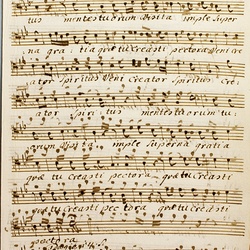 tus mentes tuorum Visita imple Super
na gra: tia quæ tu creasti pectora Veni cre
ator Spiritus Veni Creator Spiritus cre:
ator Spiri: tus mentes tuorum tu:
orum Visita imple Superna gratia
quæ tu creasti pectora quæ tu creasti
quæ tu creasti pectora quæ tu creasti
pectora